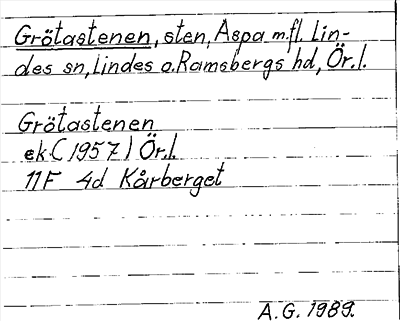 Grötastenen, sten, Aspa m.fl. Lin-
des sn, Lindes o. Ramsbergs hd, Ör.l.
Grötastenen
ek (1957) Ör.l.
11F 4d Kårberget
A.G. 1989.